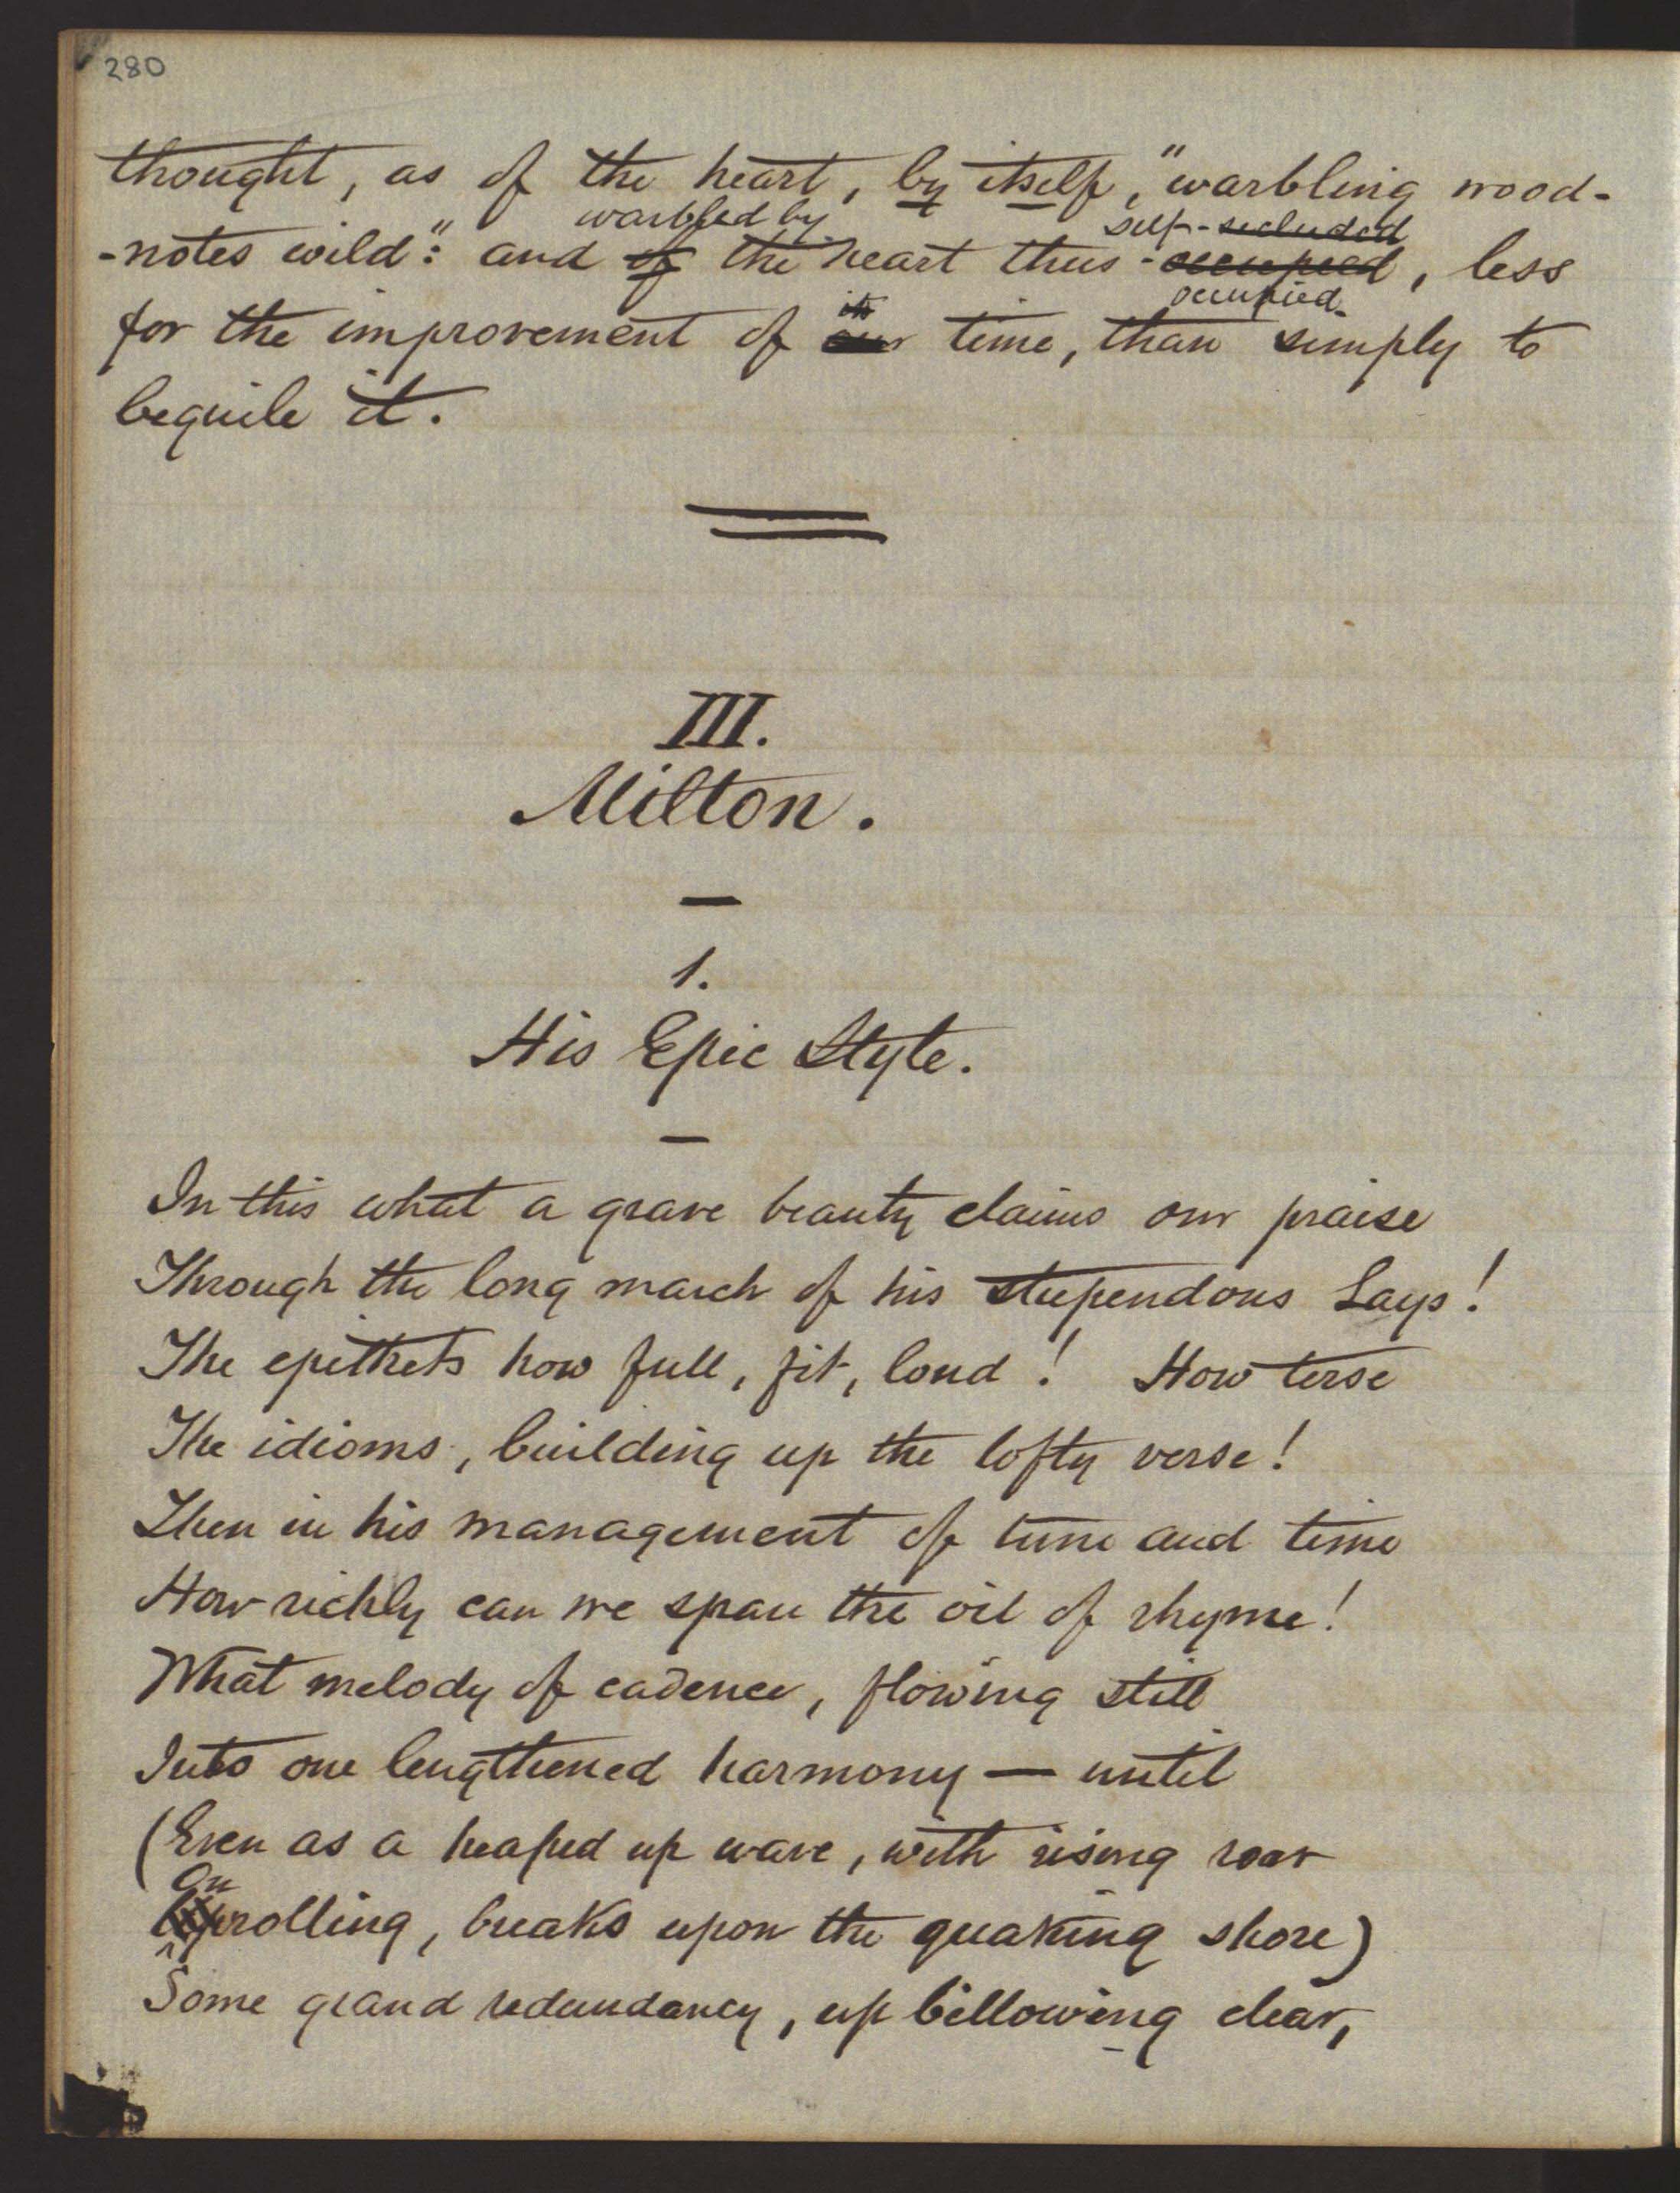 280
thought, as of the heart, by itself, "warbling wood-
warbled by self-secluded
-notes wild": and of the heart thus-occupied, less
its occupied
for the improvement of our time, than simply to
beguile it.
III.
Milton.
1.
His Epic Style.
In this what a grave beauty claims our praise
Through the long march of his stupendous Lays!
The epithets how full, fit, loud! How terse
The idioms, building up the lofty verse!
Then in his management of tune and time
How richly can we spare the oil of rhyme!
What melody of cadence, flowing still
Into one lengthened harmony — until
(Even as a heaped up wave, with rising roar
On
rolling, breaks upon the quaking shore)
Some grand redundancy, up billowing clear,